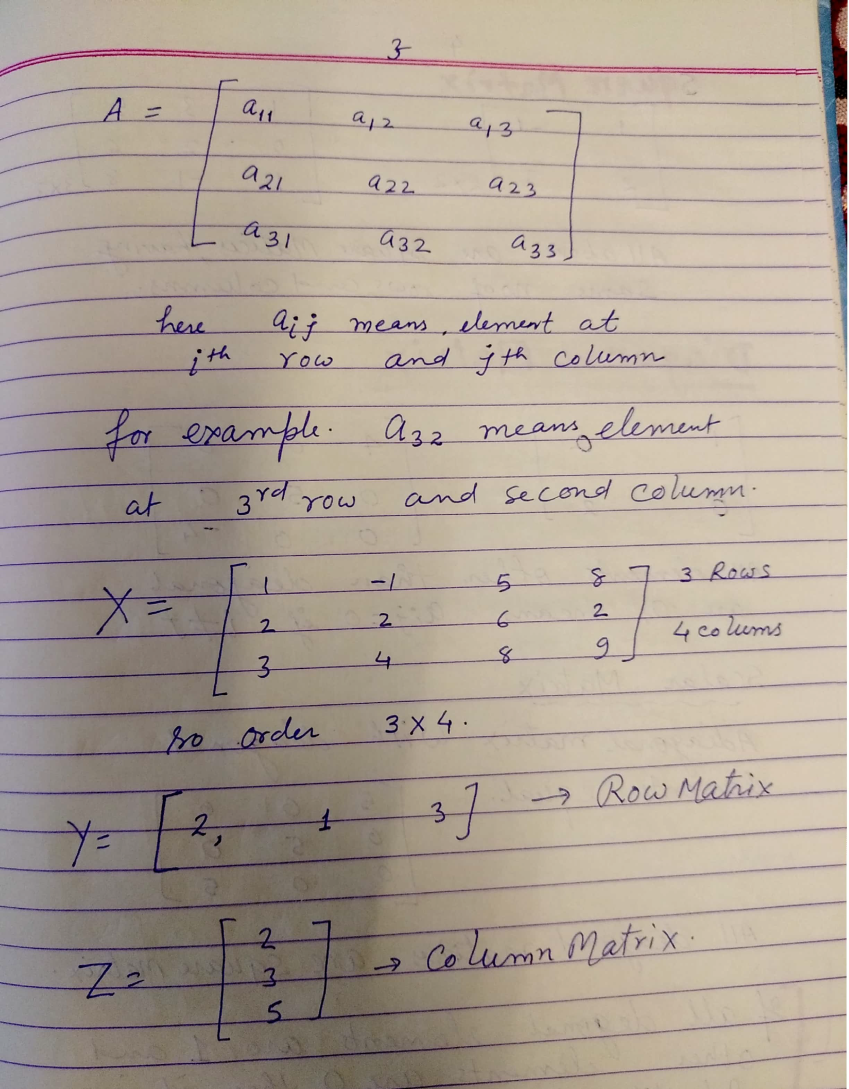 3
A = [ a11 a12 a13
a21 a22 a23
a31 a32 a33 ]
here aij means, element at
ith row and jth column
for example. a32 means, element
at 3rd row and second column.
X = [ 1 -1 5 8 ] 3 Rows
2 2 6 2
4 colums
3 4 8 9
so order 3×4.
Y = [ 2, 1 3 ] → Row Matrix
Z = [ 2
3 → Column Matrix.
5 ]